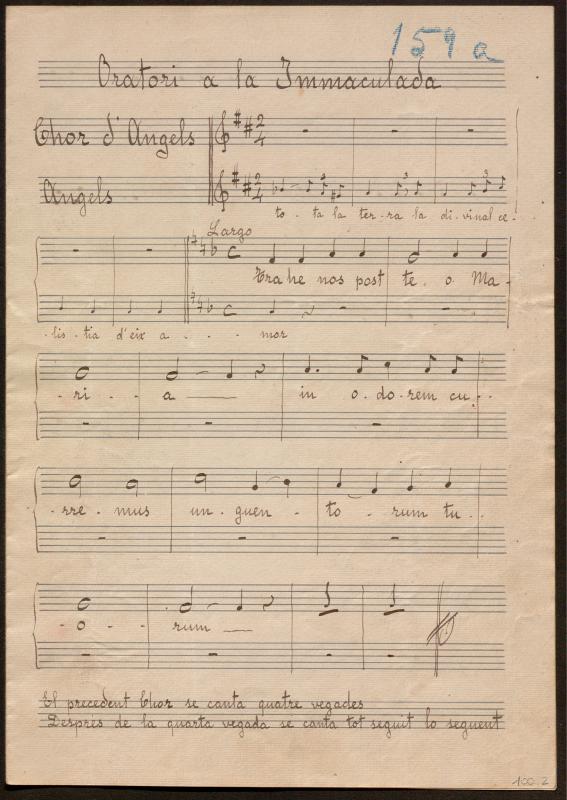 159 a
Oratori a la Immaculada
Chor d'Angels
Angels
to - ta la ter - ra la di - vinal ce -
Largo
Trahe nos post te . o Ma -
- lis - tia d'eix a - - - mor
- ri - a in o - do - rem cu - -
- rre - mus un - guen - to - rum tu - -
- o - - rum
El precedent Chor se canta quatre vegades
Desprès de la quarta vegada se canta tot seguit lo seguent
100.2